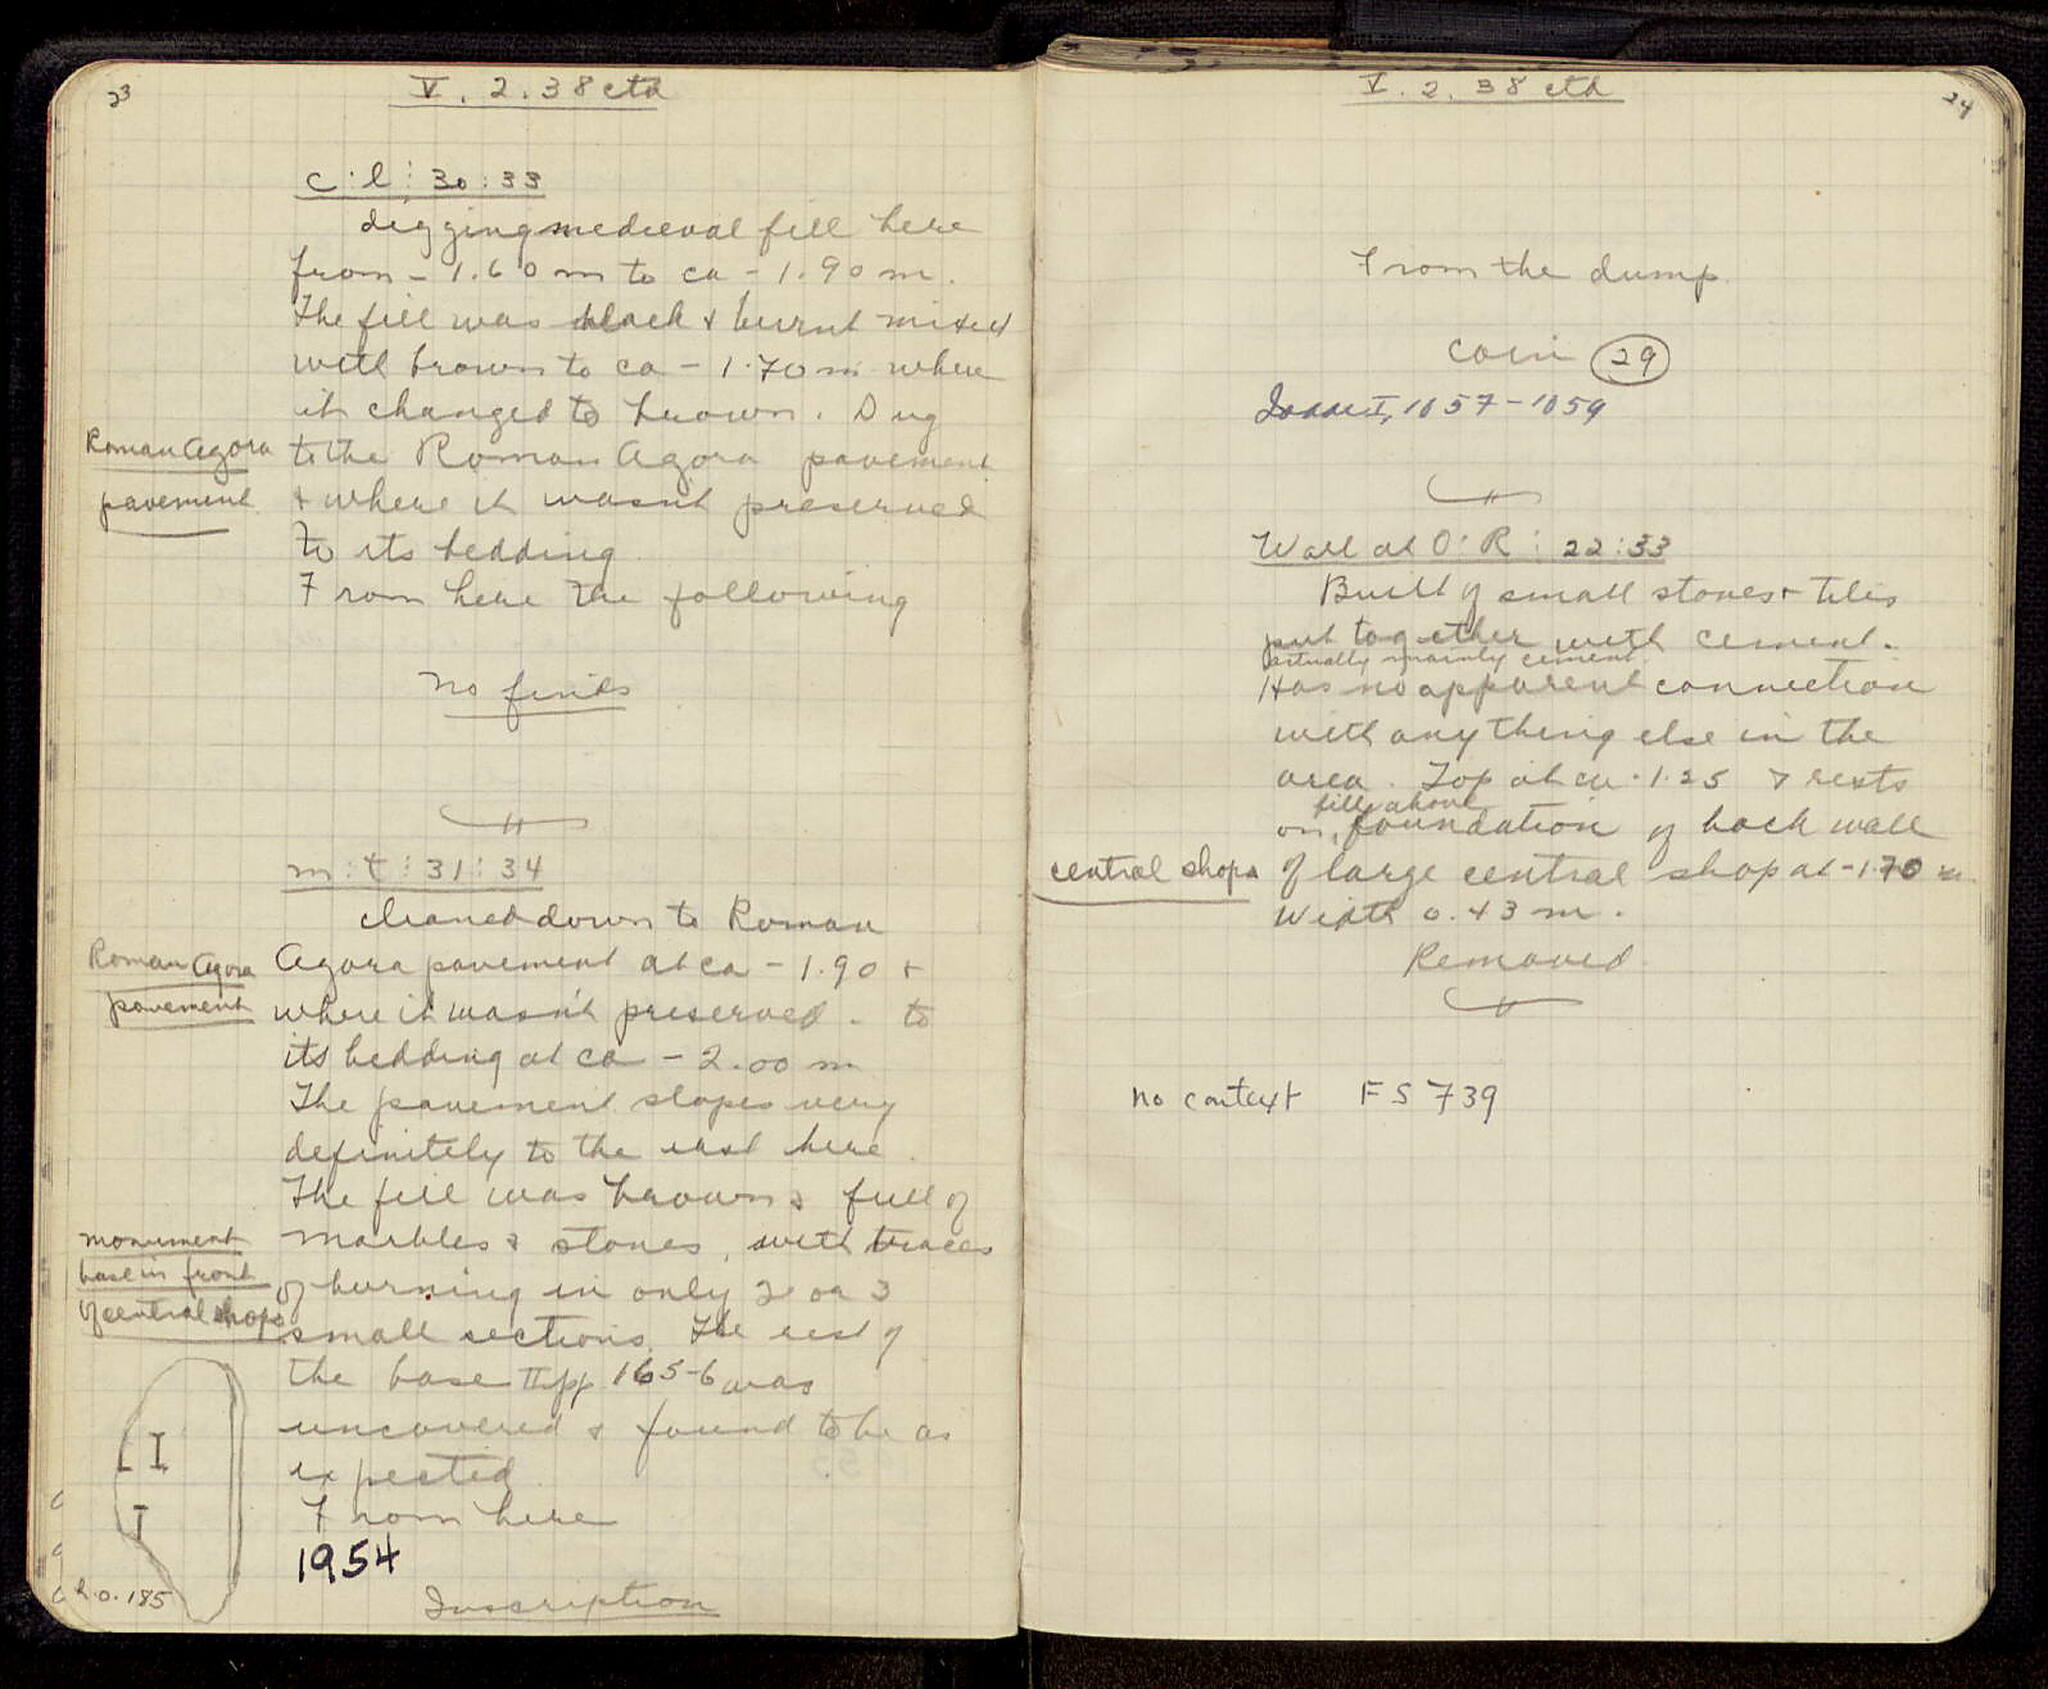 23
V. 2. 38 ctd
C:l:30:33
digging medieval fill here
from - 1.60 m to ca - 1.90 m.
The fill was black & burnt mixed
with brown to ca - 1.70 m where
it changed to brown. Dug
Roman Agora
to the Roman Agora pavement
pavement
& where it wasn't preserved
to its bedding.
From here the following
No finds
m:t:31:34
cleaned down to Roman
Roman Agora
Agora pavement at ca - 1.90 &
pavement
where it wasn't preserved - to
its bedding at ca - 2.00 m
The pavement slopes very
definitely to the east here.
The fill was brown & full of
monument
marbles & stones, with traces
base in front
of burning in only 2 or 3
of central shops
small sections. The rest of
the base II pp 165-6 was
uncovered & found to be as
expected.
From here
1954
h. 0.185
Inscription
V. 2. 38 ctd
24
From the dump
coin 29
Isaac I, 1057-1059
Wall at O:R:22:33
Built of small stones & tiles
put together with cement.
actually mainly cement
Has no apparent connection
with anything else in the
area. Top at ca - 1.25 & rests
fill above
on foundation of back wall
central shops
of large central shop at -1.70 m.
Width 0.43 m.
Removed
no context FS 739